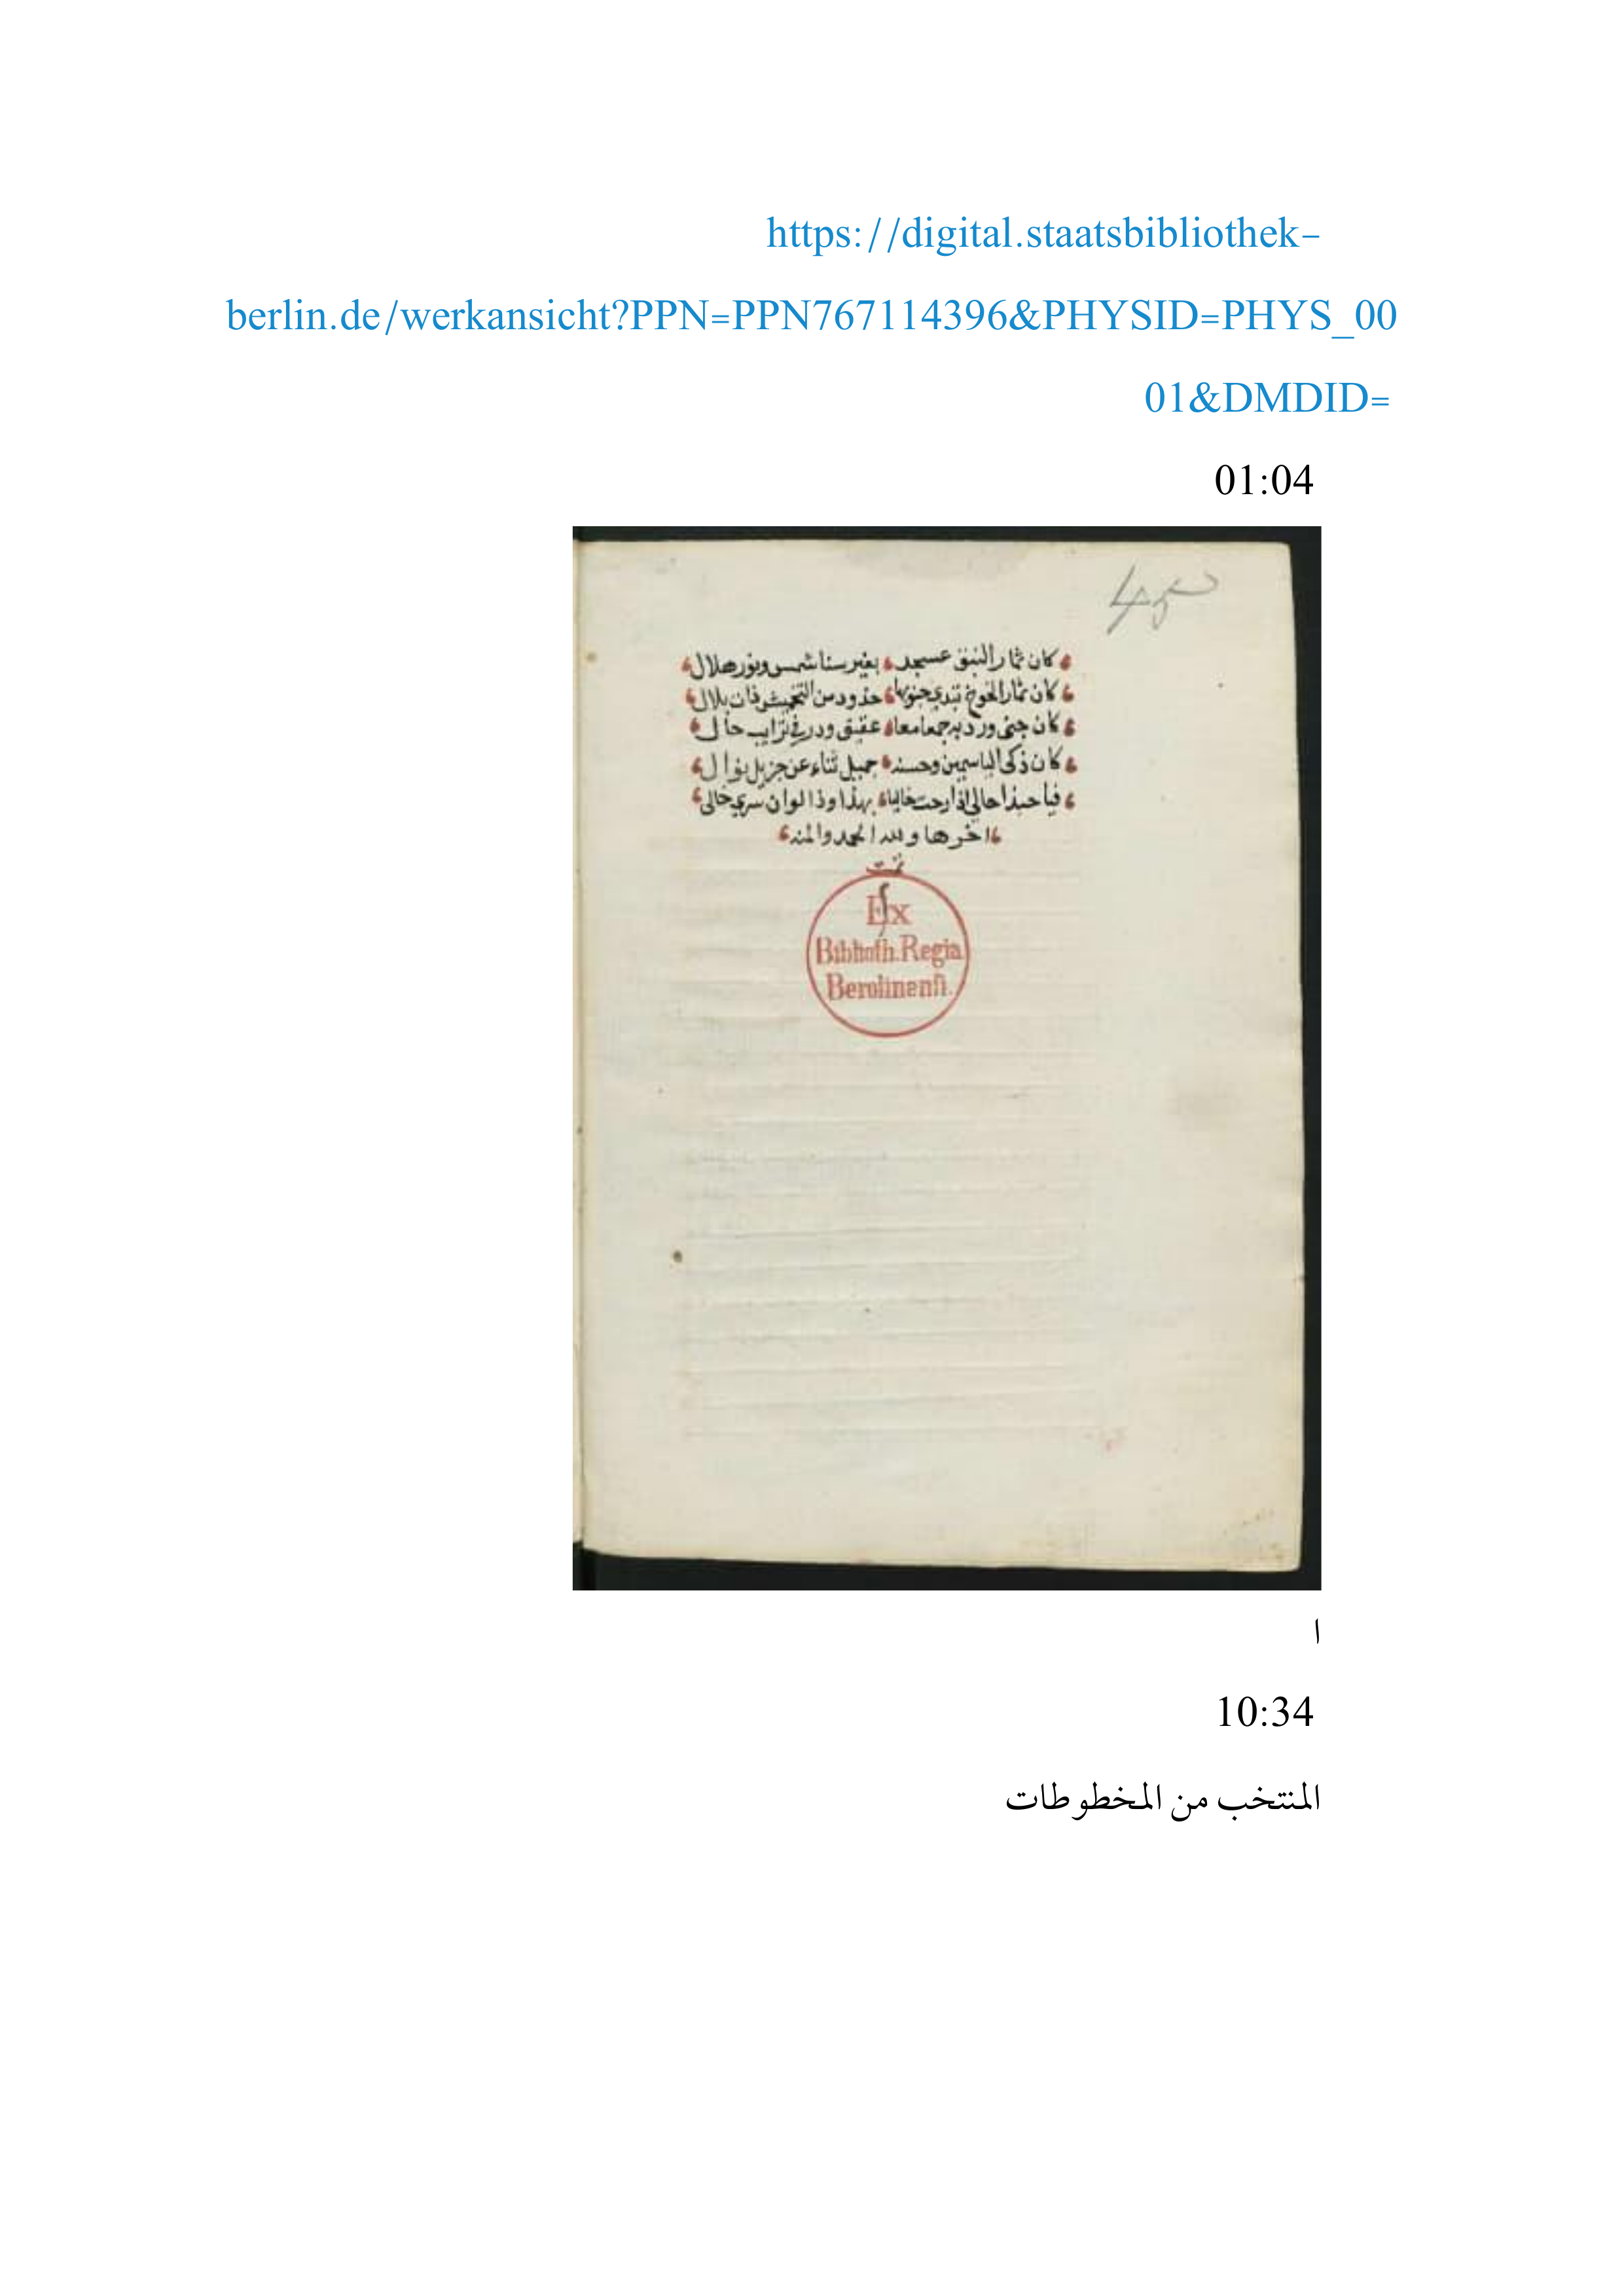 https://digital.staatsbibliothek-
berlin.de/werkansicht?PPN=PPN767114396&PHYSID=PHYS_00
01&DMDID=
01:04
كان ثمار النبق عسجد بغير سنا شمس ونور هلال
كان ثمار الخوخ تبدي جنوبها خدود من التخميش ذات بلال
كان جنى ورد به جمعا معا عقيق ودر في ترايب حال
كان ذكى الياسمين وحسنه جميل ثناء عن جزيل نوال
فيا حبذا حالي اذا رحت خاليا بهذا وذا لو ان سري خالي
اخرها ولله الحمد والمنه
تمت
Ex
Biblioth. Regia
Berolinensi.
ا
10:34
المنتخب من المخطوطات